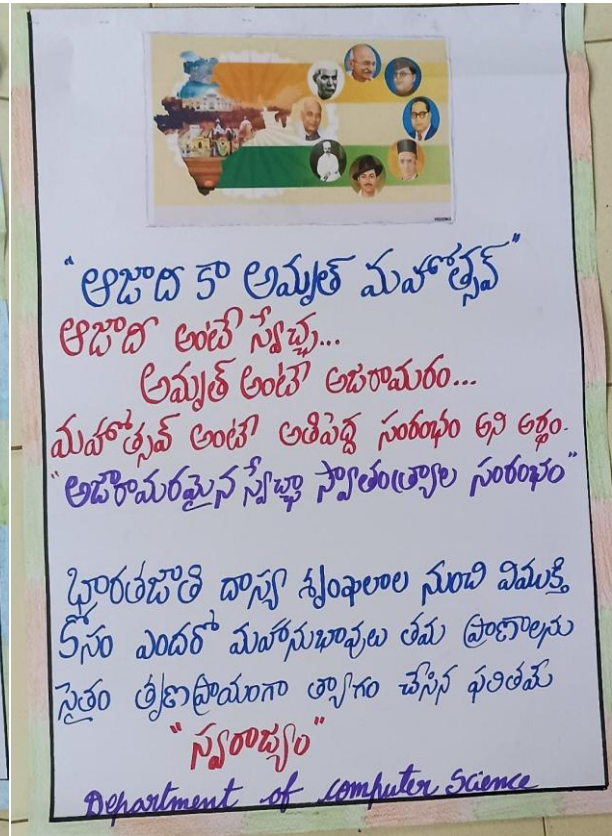 "ఆజాదీ కా అమృత్ మహోత్సవ్"
ఆజాదీ అంటే స్వేచ్ఛ...
అమృత్ అంటే అజరామరం...
మహోత్సవ్ అంటే అతిపెద్ద సంరంభం అని అర్థం.
"అజరామరమైన స్వేచ్ఛా స్వాతంత్ర్యాల సంరంభం"
భారతజాతి దాస్య శృంఖలాల నుంచి విముక్తి
కోసం ఎందరో మహానుభావులు తమ ప్రాణాలను
సైతం తృణప్రాయంగా త్యాగం చేసిన ఫలితమే
"స్వరాజ్యం"
Department of computer Science